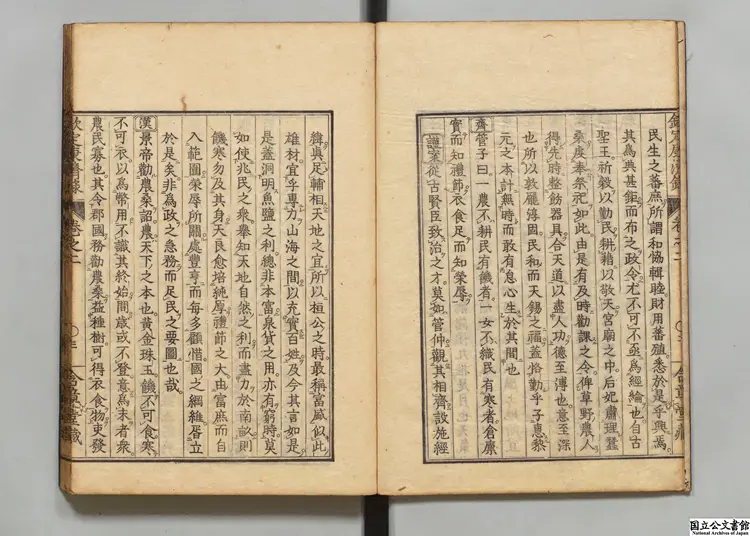 民生之蕃庶所謂和協輯睦財用蕃殖悉於是乎興焉
其為典甚鉅而布之政令尤不可不亟為經綸也自古
聖王祈穀以勸民耕藉以敬天宮廟之中后妃肅理蠶
桑虔奉祭祀如此由是有及時勸課之令俾草野農人
得先時整飭器具合天道以盡人功德至溥也意至深
也所以敦龐淳固民和而天錫之福蓋恪勤乎子惠黎
元之本計無時而敢有息心生於其間也
齊管子曰一農不耕民有饑者一女不織民有寒者倉廩
實而知禮節衣食足而知榮辱
謹案從古賢臣致治之才莫如管仲觀其相齊設施經
緯真足輔相天地之宜所以桓公之時最稱富威似此
雄材宜乎專力山海之間以充實百姓及今其言如是
是蓋洞明魚鹽之利總非本富泉貨之用亦有窮時莫
如使兆民之衆舉知天地自然之利而盡力於南畝則
饑寒勿及其身天良愈培純厚禮節之大由富庶而自
入範圍榮辱所關處豐亨而每多顧惜國之綱維胥立
於是矣非為政之急務而足民之要圖也哉
漢景帝勸農桑詔農天下之本也黃金珠玉饑不可食寒
不可衣以為幣用不識其終始間歲或不登意為末者衆
農民寡也其令郡國務勸農桑益種樹可得衣食物吏發
欽定康濟錄 卷之二
含章堂藏
卷之二
含章堂藏
国立公文書館
National Archives of Japan